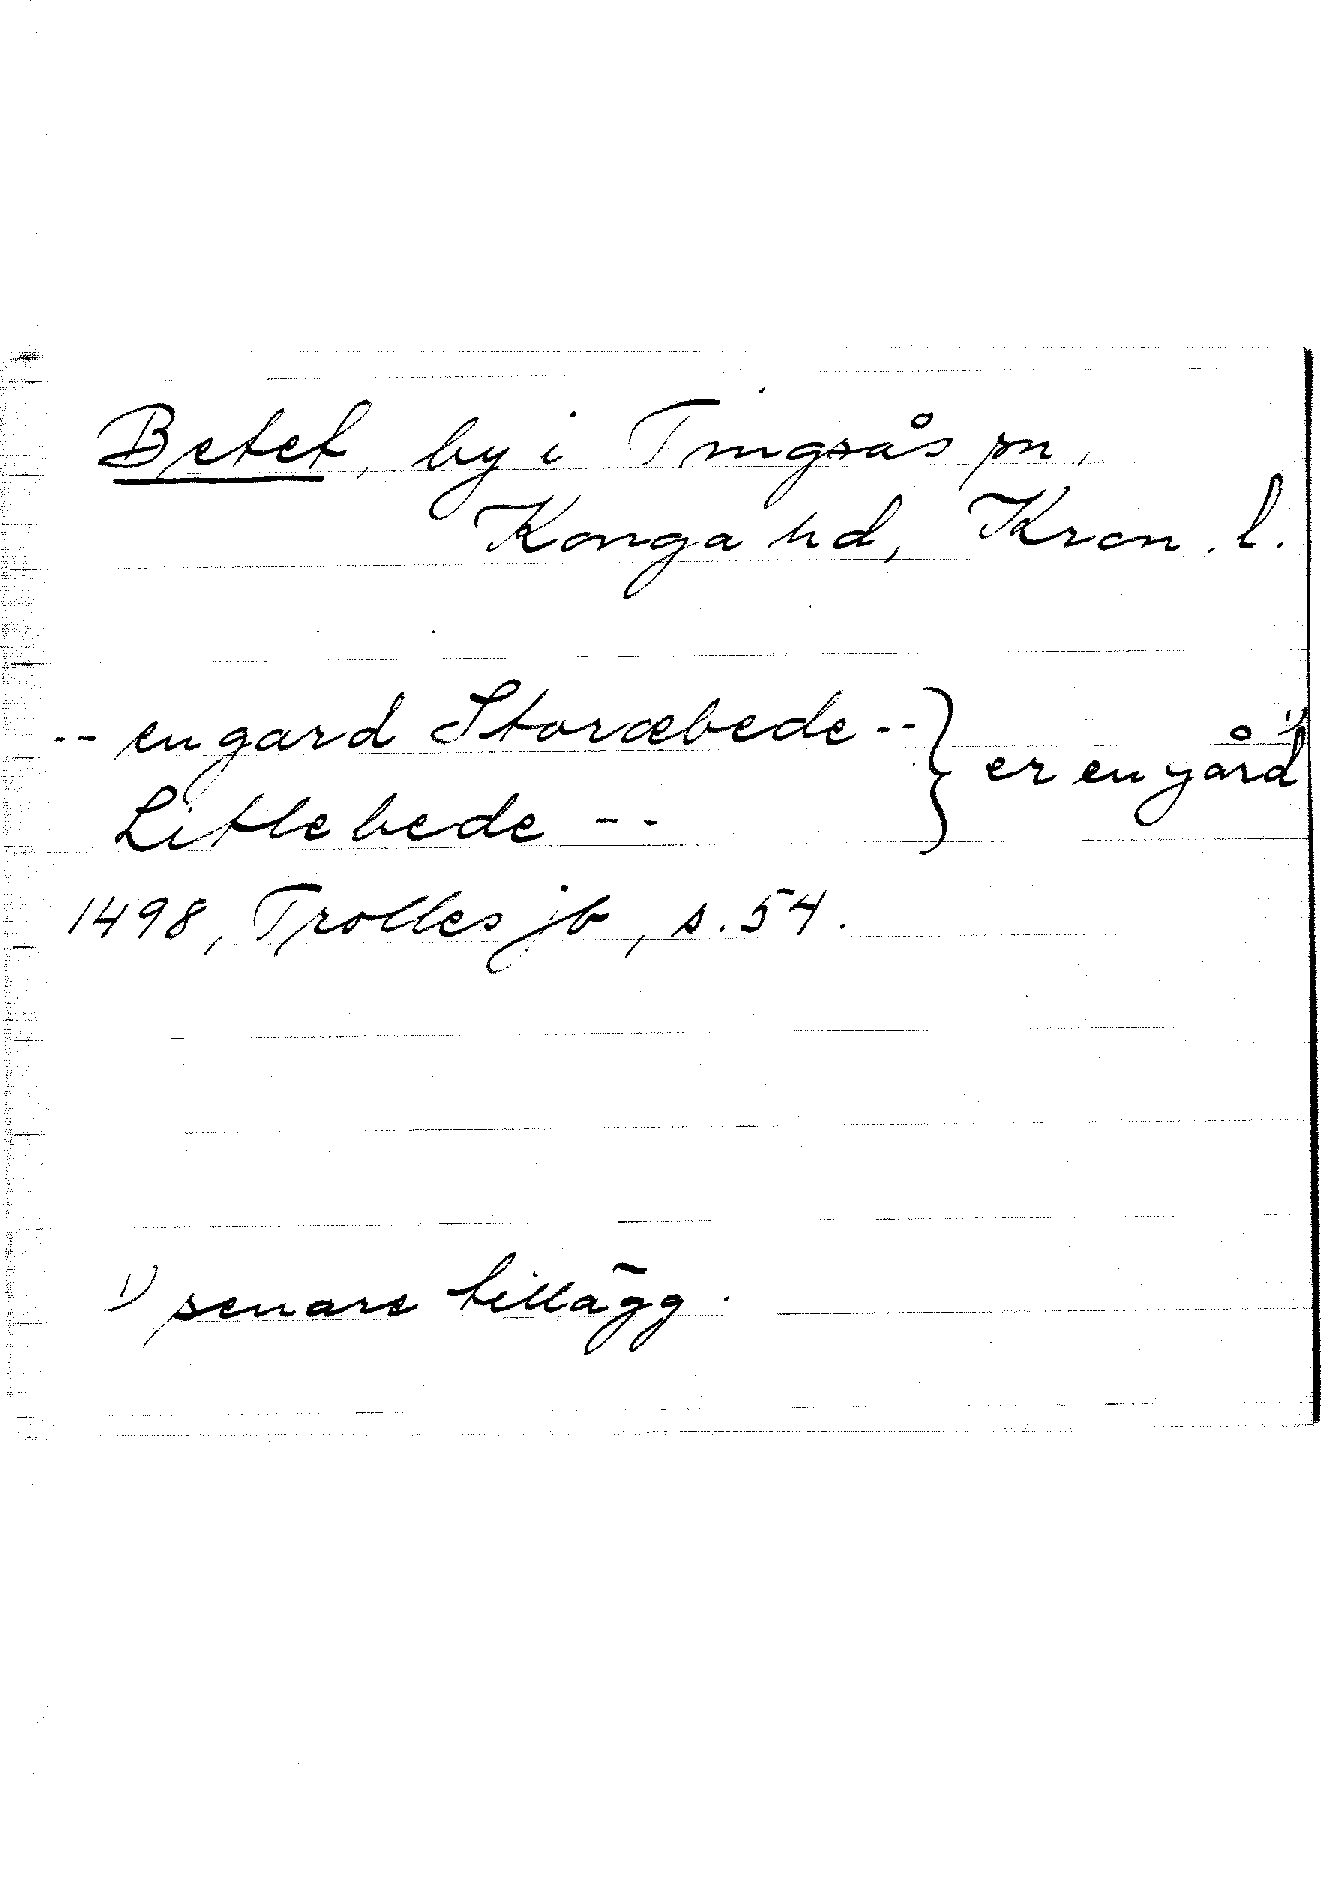 Betet, by i Tingsås sn,
Konga hd, Kron. l.
-- en gard Storæbede -- } er en gård 1)
Litlebede --
1498, Trolles jb, s. 54.
1) senare tillägg.